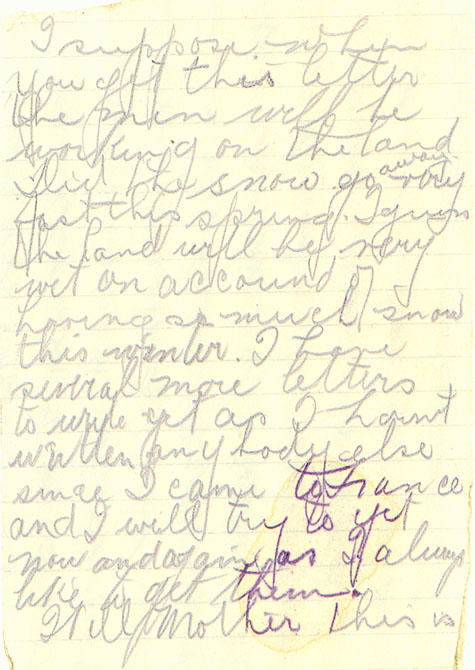 I suppose when
you get this letter
the men will be
working on the land
Did the snow go away very
fast this spring. I guess
the land will be very
wet on account of
having so much snow
this winter. I have
several more letters
to write yet as I havnt
written any body else
since I came to France
and I will try to yet
now and again as I always
like to get them.
Well Mother this is